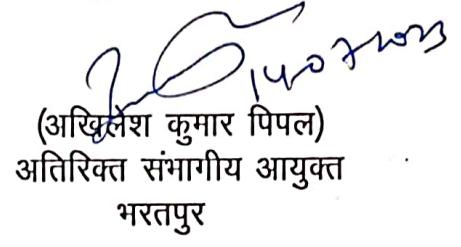 14072023
(अखिलेश कुमार पिपल)
अतिरिक्त संभागीय आयुक्त
भरतपुर